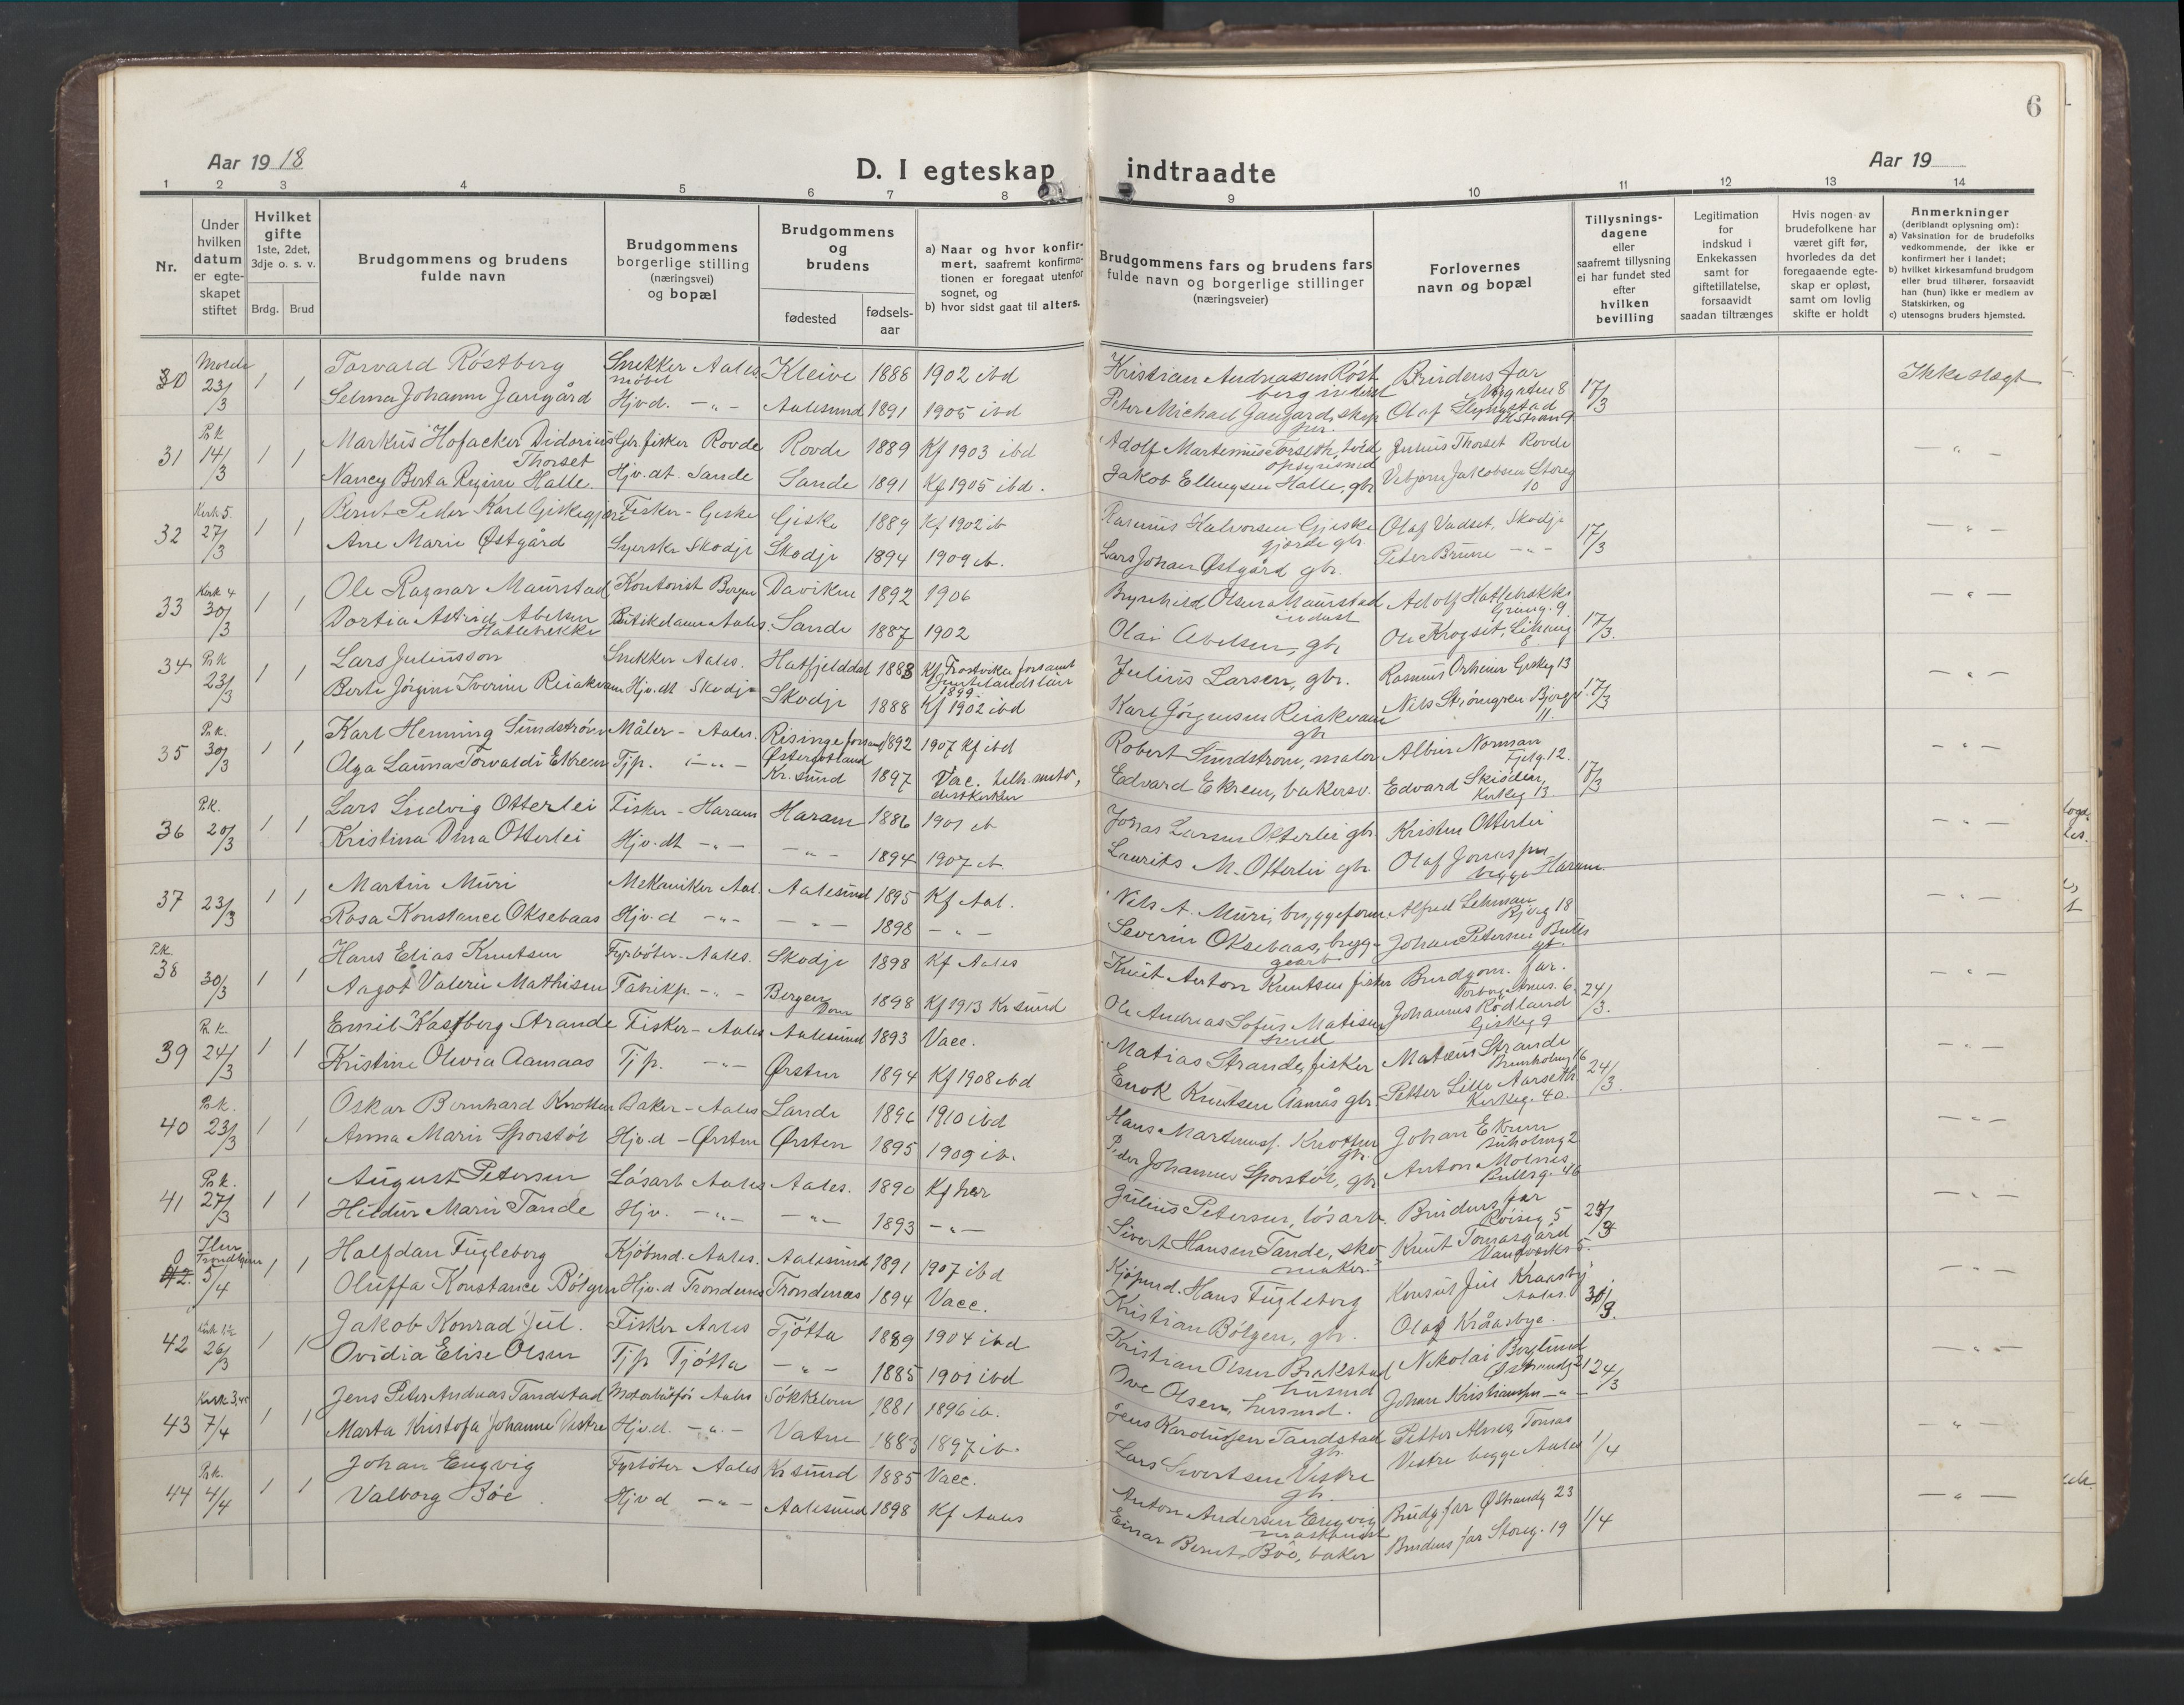 6
Aar 19 18
D. I egteskap indtraadte
Aar 19
1 2 3 4 5 6 7 8 9 10 11 12 13 14
Nr.
Under hvilken datum er egteskapet stiftet
Hvilket gifte
1ste, 2det, 3dje o. s. v.
Brdg. Brud
Brudgommens og brudens fulde navn
Brudgommens borgerlige stilling (næringsvei) og bopæl
Brudgommens og brudens
fødested
fødsels-aar
a) Naar og hvor konfir-
mert, saafremt konfirma-
tionen er foregaat utenfor
sognet, og
b) hvor sidst gaat til alters.
Brudgommens fars og brudens fars
fulde navn og borgerlige stillinger
(næringsveier)
Forlovernes
navn og bopæl
Tillysnings-
dagene
eller
saafremt tillysning
ei har fundet sted
efter
hvilken
bevilling
Legitimation
for
indskud i
Enkekassen
samt for
giftetillatelse,
forsaavidt
saadan tiltrænges
Hvis nogen av
brudefolkene har
været gift før,
hvorledes da det
foregaaende egte-
skap er opløst,
samt om lovlig
skifte er holdt
Anmerkninger
(deriblandt oplysning om):
a) Vaksination for de brudefolks
vedkommende, der ikke er
konfirmert her i landet;
b) hvilket kirkesamfund brudgom
eller brud tilhører, forsaavidt
han (hun) ikke er medlem av
Statskirken, og
c) utensogns bruders hjemsted.
30 Molde 23/3 1 1 Torvald Röstberg Snekker Aales. Kleive 1888 1902 ibd Kristian Andreassen Röst Brudens far 17/3 Ikke slegt
møbel berg inderst
Selma Johanne Jangård Hjv.d. -"- Aalesund 1891 1905 ibd Peter Michael Jangard, Olaf
31 Pr.k 14/3 1 1 Markus Hofacker Didorius Gbr. fisker Rovde Rovde 1889 Kf 1903 ibd Adolf Martinius Julius Thorset Rovde -"-
Thorset
Nancy Berta Regine Halle. Hjv.dt. Sande Sande 1891 Kf 1905 ibd. Jakob Ellingsen Halle, gbr Jakobsen Storeg
10
32 Kirk 5. 27/3 1 1 Bernt Peder Karl Giskegjære Fisker - Giske Giske 1889 Kf 1902 ib Rasmus Halvorsen Gjiske Olaf Vadset, Skodje 17/3 -"-
gjærde gbr
Ane Marie Østgård Syerske Skodje Skodje 1894 1909 ib. Lars Johan Østgård gbr. Peter Brune -"-
33 Kirk 4 30/3 1 1 Ole Ragnar Maurstad Kontorist Bergen Daviken 1892 1906 Brynhild Olsen Maurstad Adolf Hatlebakke 17/3. -"-
Dortia Astrid Abelsen Butikdame Aales. Sande 1887 1902 Olai Abelsen, gbr Ole Krogset,
Hatlebakke
34 Pr.k 23/3 1 1 Lars Juliusson Snekker Aales. Hatfjelddal 1883 Kf Frostviken forsaml Julius Larsen, gbr. Rasmus 13 17/3 -"-
Jemtlandslän
1899
Berte Jörgine Iverine Reiakvam Hjv.dt Skodje Skodje 1888 Kf 1902 ibd Karl Jörgensen Reiakvam Nils Strömgren
gbr 11.
35 Pr.k. 30/3 1 1 Karl Henning Sundström Måler - Aales. Risinge forsaml 1892 1907 Kf ibd Robert Sundström, maler Albin Norman -"-
Östergötland
Olga Launa Torvaldi Ekrem Tjp. -"- Kr.sund 1897 Vac. Edvard Ekrem, bakersv. Edvard 17/3
Kirkeg 13.
36 Pr.k. 20/3 1 1 Lars Ludvig Otterlei Fisker - Haram Haram 1886 1901 ib Jonas Larsen Otterlei gbr. Kristen Otterlei -"-
Kristina Dina Otterlei Hjv.dt -"- -"- 1894 1907 ib. Laurits M. Otterlei gbr Olaf
begge Haram.
37 23/3 1 1 Martin Muri Mekaniker Aal. Aalesund 1895 Kf Aal. Nils A. Muri, byggeform Alfred Lehman -"-
Rosa Konstance Oksebaas Hjv.d -"- -"- 1898 -"- Severin Oksebaas, brygg- Johan Petersen
gearb
Pr.k.
38 30/3 1 1 Hans Elias Knutsen Fyrböter. Aales. Skodje 1898 Kf Aales Knut Anton Knutsen fisker Brudgom. far. -"-
Aagot Valerie Mathisen Fabrikp. -"- Bergen 1898 Kf 1913 Kr sund Ole Andreas Sofus Matisen Johannes Rödland 24/3.
Dom smed Giskeg 9
39 Pr.k. 24/3 1 1 Emil Kastberg Strande Fisker - Aales Aalesund 1893 Vacc. Matias Strande, fisker Mateus Strande
Brunholmg 16
Kristine Olivia Aamaas Tjp. -"- Ørsten 1894 Kf 1908 ibd Enok Knutsen Aamås gbr. Petter Lille Aarseth 24/3.
Kirkeg. 40.
40 Pr.k. 23/3 1 1 Oskar Bernhard Knotten Baker - Aales Sande 1896 1910 ibd Hans Martinus s. Knotten Johan Ekrem -"-
gbr. 2
Anna Marie Sporstöl Hjv.d - Ørsten Ørsten 1895 1909 ib. Peder Johannes Sporstöl, gbr Anton Molnes
46
41 Pr.k. 27/3 1 1 August Petersen Lösarb Aales Aales. 1890 Kf her Julius Petersen, lösarb. Brudens far 24/3 -"-
Hildur Marie Tande Hjv. -"- -"- 1893 -"- Sivert Hansen Tande, sko- Knut Tomasgård
maker.
0 Ilen Trondhjem 5/4 1 1 Halfdan Fugleborg Kjöbmd. Aales. Aalesund 1891 1907 ibd Kjöpmd. Hans Fugleborg Konsul Jul Kraasby -"-
Aales.
Oluffa Konstance Bölgen Hjv.d Trondenes Trondenæs 1894 Vacc. Kristian Bölgen, gbr. Olaf Kråasbye. 3.
42 Kirk 1½ 26/3 1 1 Jakob Konrad Jul. Fisker Aales Tjötta 1889 1904 ibd Kristian Olsen Brakstad Nikolai Berglund 24/3 -"-
husmd
Ovidia Elise Olsen Tjp Tjötta -"- 1885 1901 ibd Ove Olsen, husmd. Johan Kristiansen -"-
43 Kirk 3,45 7/4 1 1 Jens Peter Andreas Tandstad Motorbåtför Aales Sökkelven 1881 1896 ib. Jens Karolussen Tandstad Petter Alnes, Tomas 1/4 -"-
gbr.
Marta Kristofa Johanne Vestre Hjv.d. -"- Vatne 1883 1897 ib. Lars Sivertsen Vestre Vestre begge Aales
gbr.
44 Pr.k. 4/4 1 1 Johan Engvig Fyrböter Aales Kr sund 1885 Vacc. Anton Andersen Engvig Brudg. far Østrandg 23 1/4 -"-
maskinist
Valborg Böe Hjv.d -"- Aalesund 1898 Kf Aales Einar Bernt Böe, baker Brudens far Storeg. 19